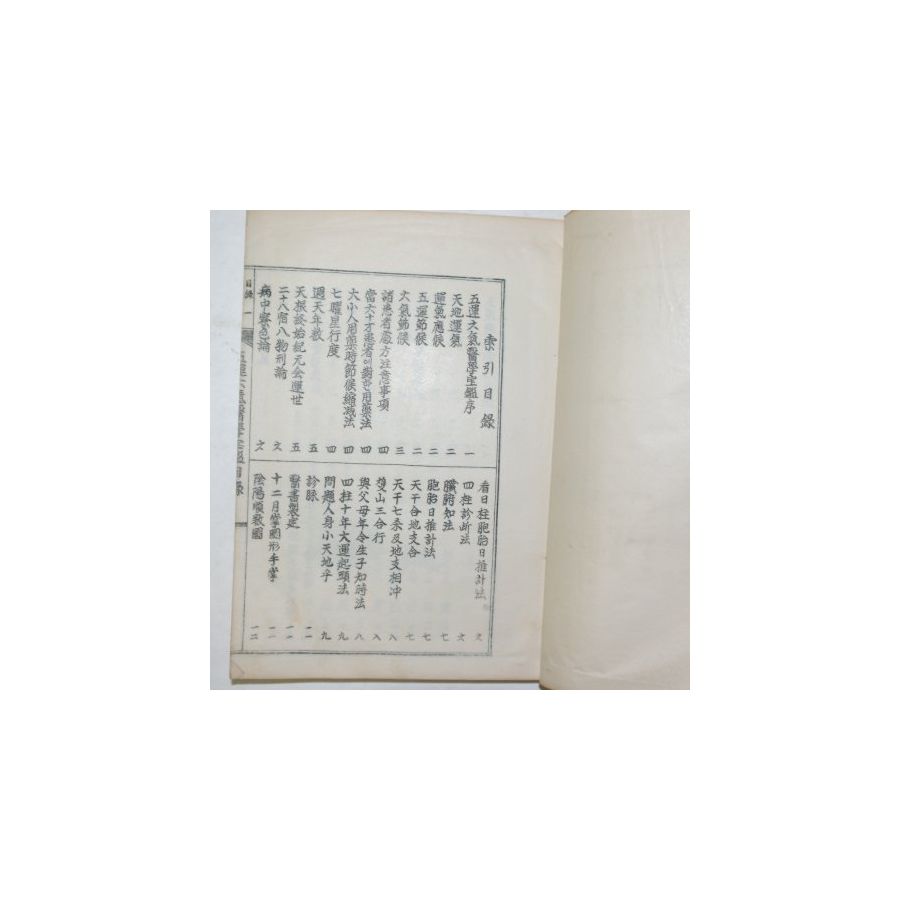 索引目錄
五運六氣醫學宝鑑序 一
天地運氣 二
運氣應候 二
五運節候 二
六氣節候 三
諸患者處方注意事項 四
當六十才患者에對한用藥法 四
大小人用藥時節候縮減法 四
七曜星行度 四
週天年数 五
天根終始紀元会運世 五
二十八宿八物刑論 六
病中察色論 六
看日柱胞胎日推計法 六
四柱診断法 六
臟腑知法 七
胞胎日推計法 七
天干合地支合 七
天干七杀及地支相冲 八
雙山三合行 八
與父母年令生子知時法 八
四柱十年大運起頭法 九
問題人身小天地乎 九
診脉 一一
醫書製定 一一
十二月掌圖形手掌 一一
陰陽順数圖 一二
目錄 一
五運六氣醫學宝鑑目錄